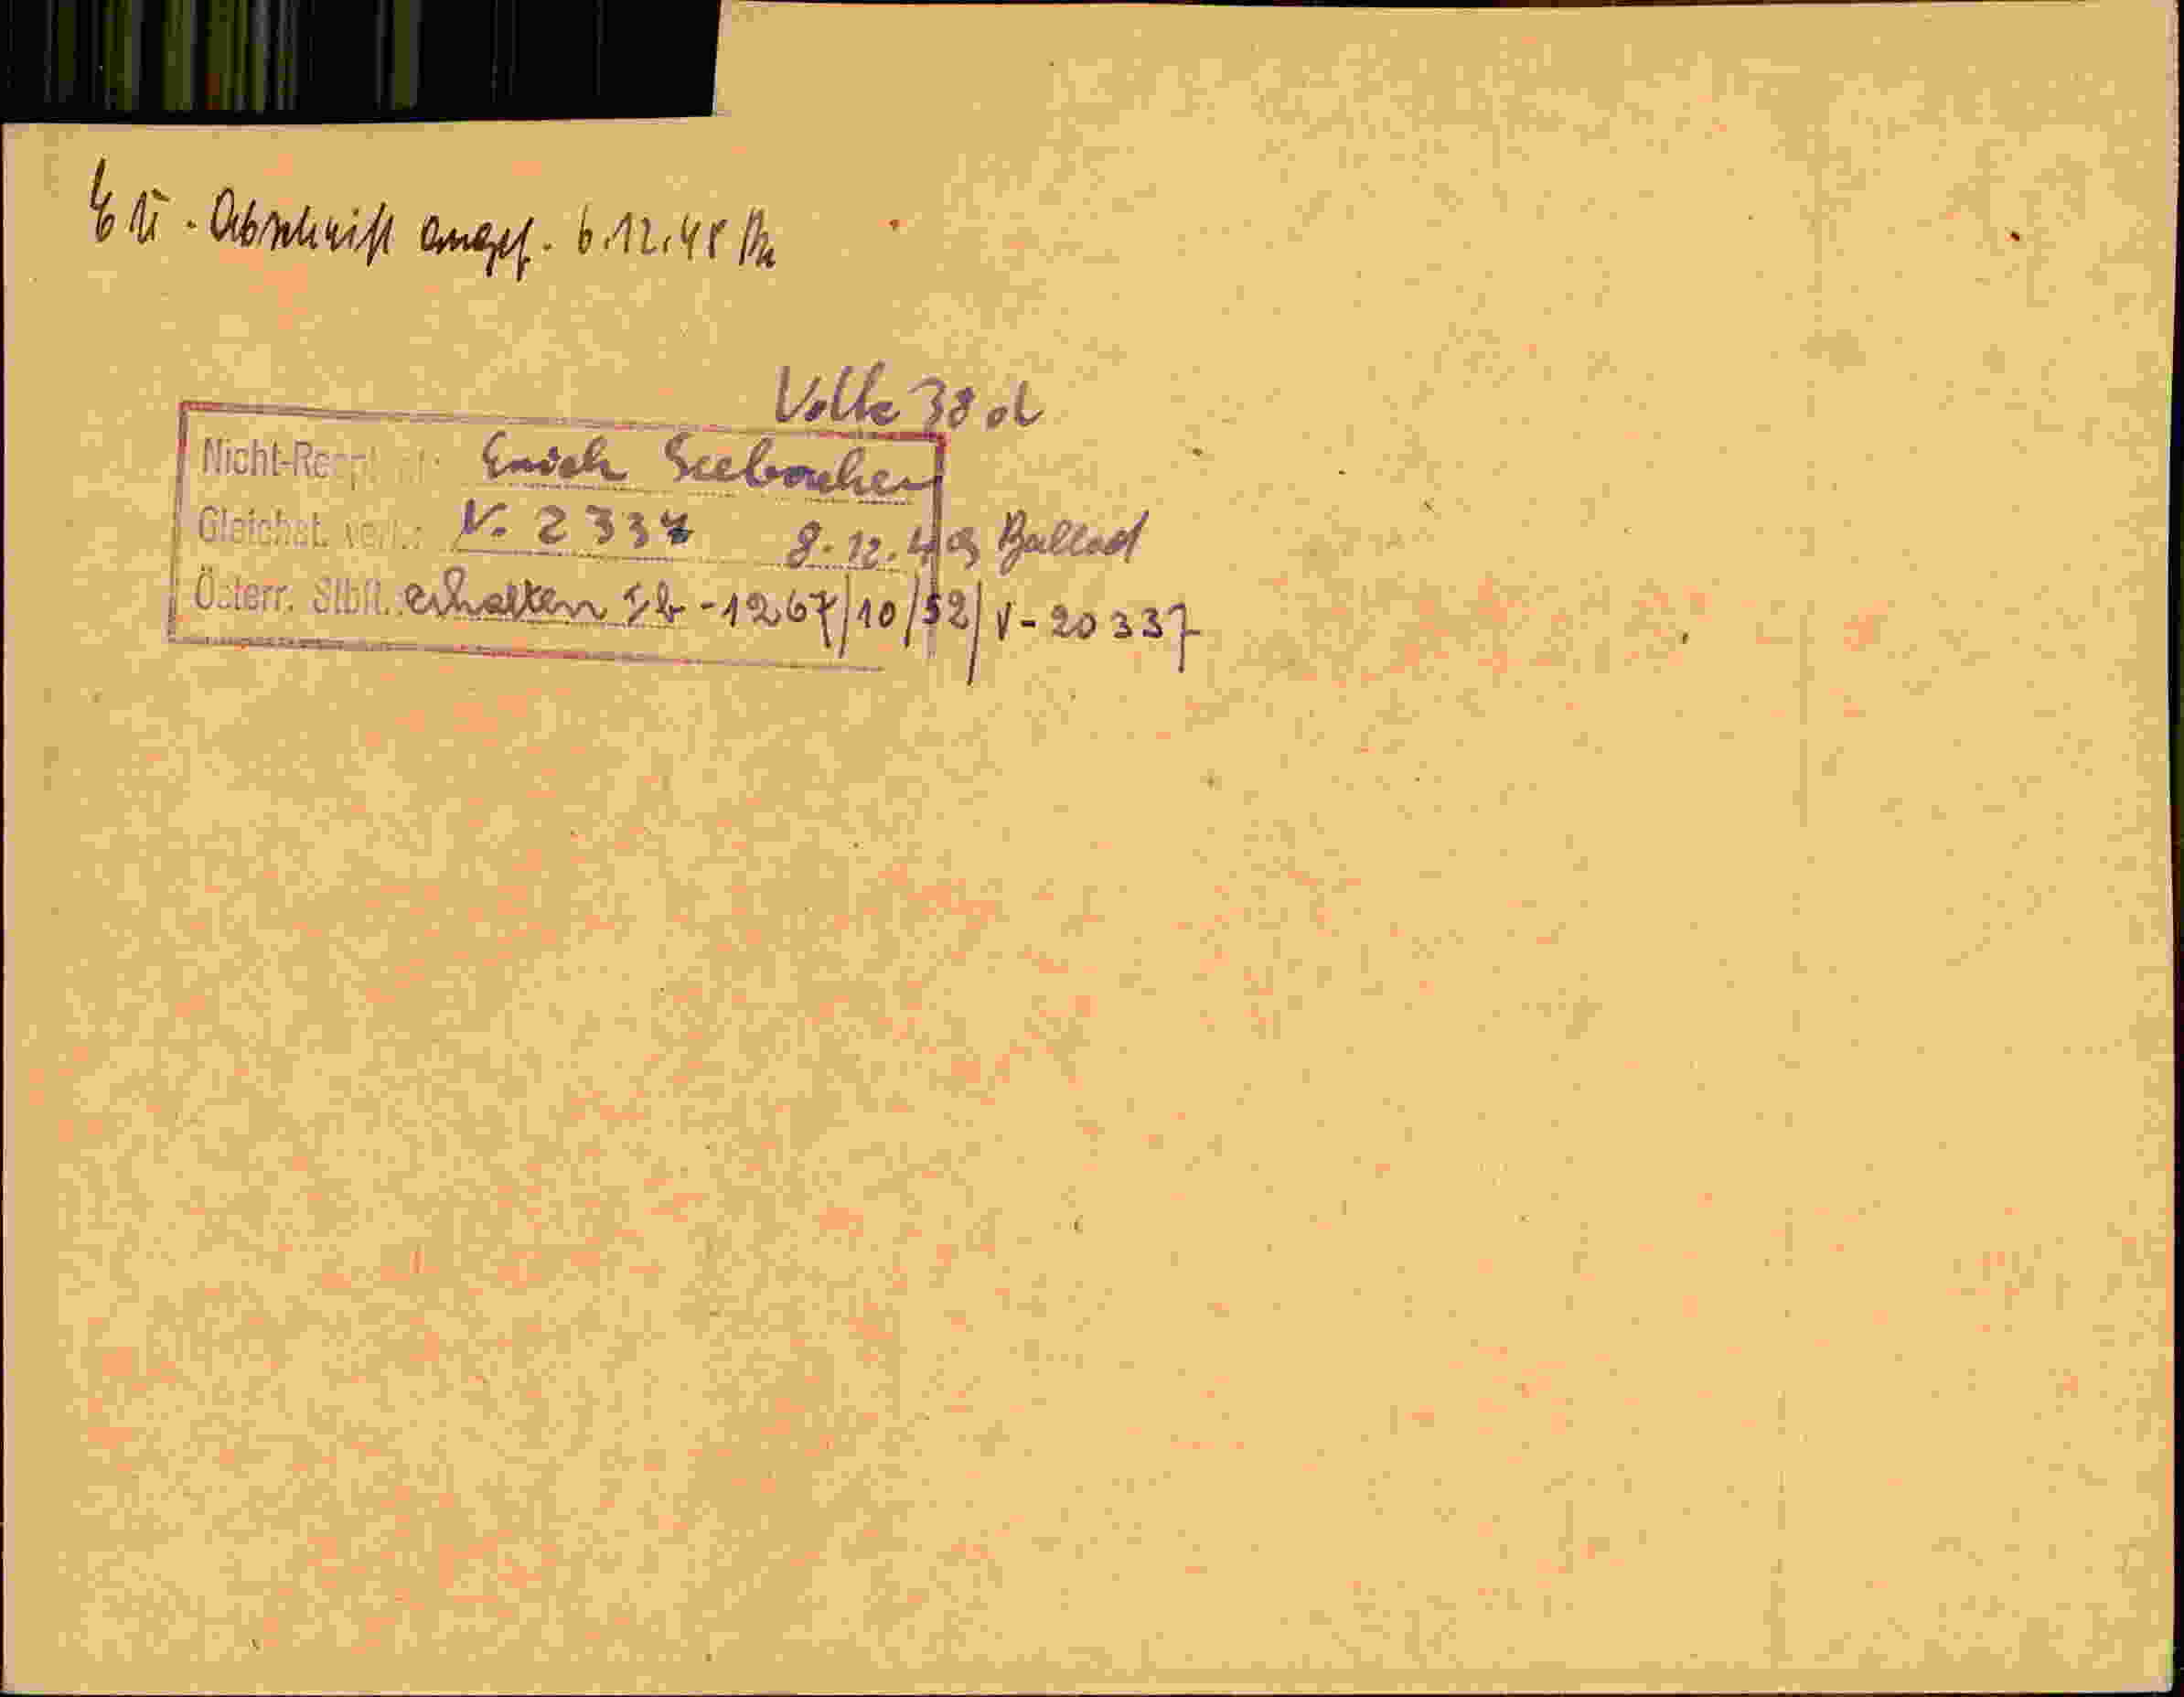 EU - Abschrift angef. 6.12.48
Volke 38 d
Nicht-Reopt.
Erich Seebacher
Gleichst. verl.: V. 2337 8.12.49
Österr. Stbft. erhalten Ib - 1267/10/52/V - 20337